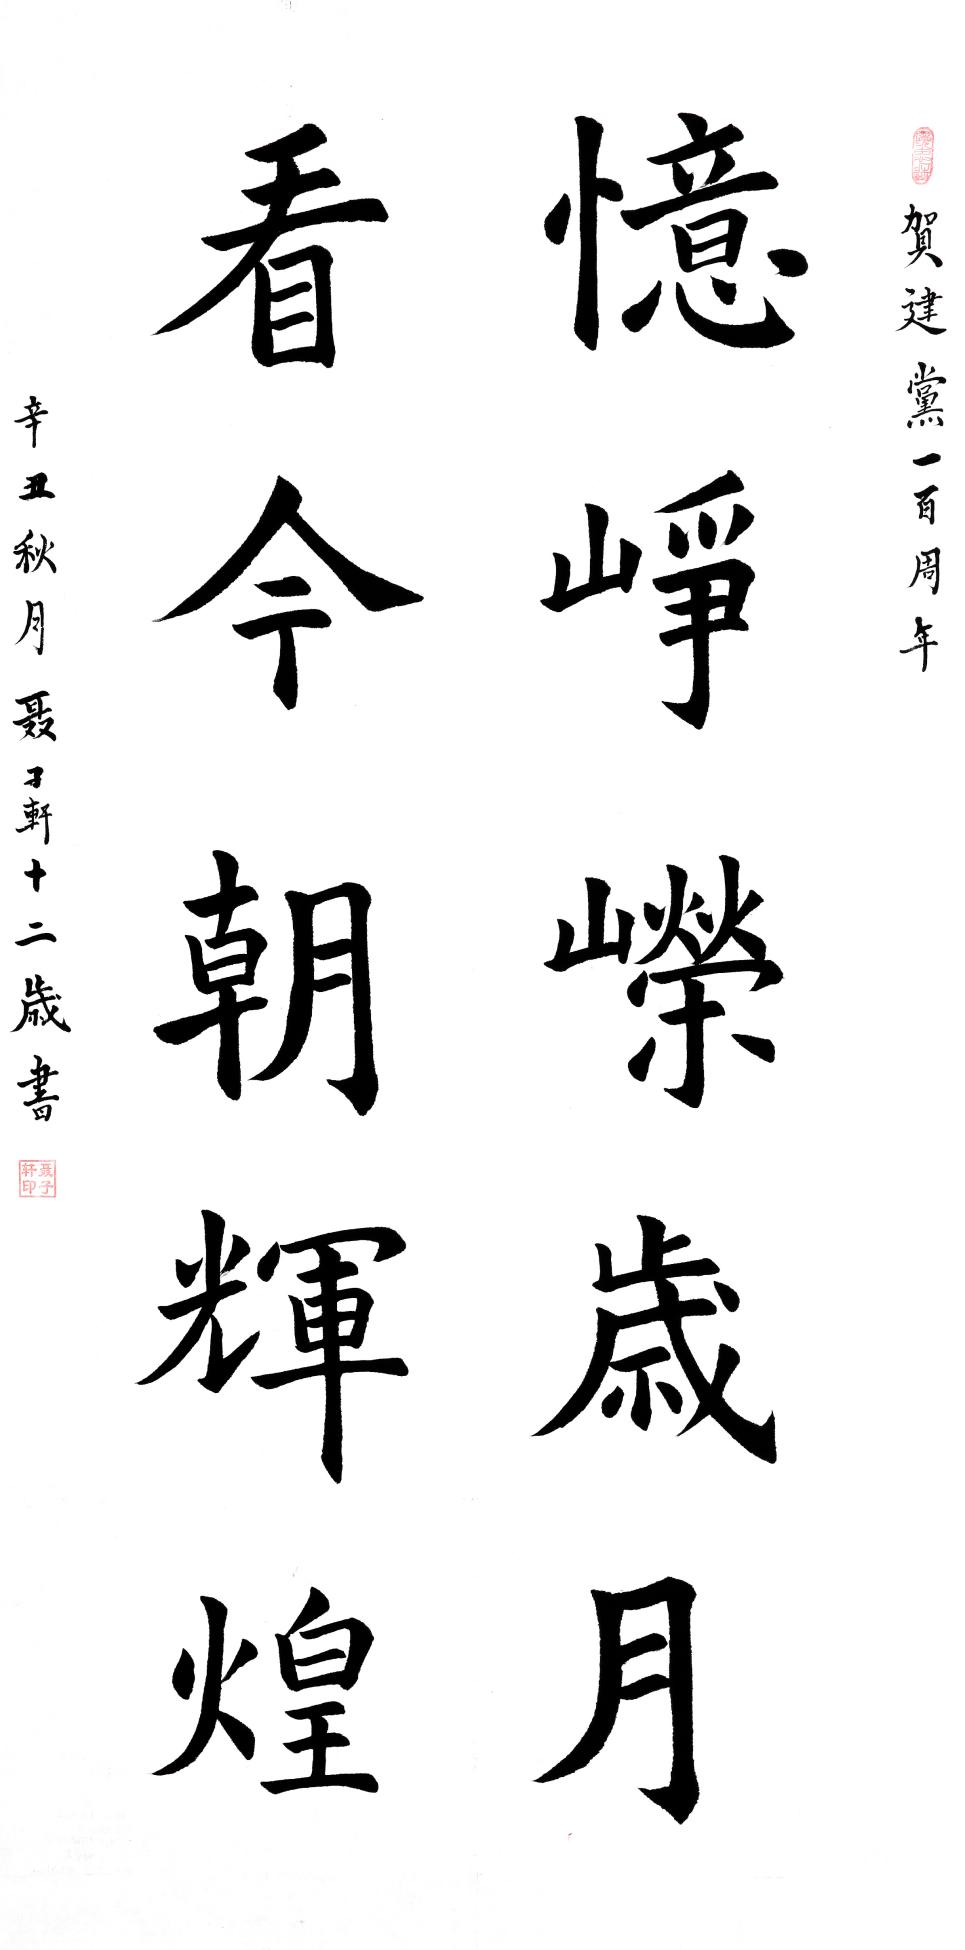 賀建黨一百周年
憶崢嶸歲月
看今朝輝煌
辛丑秋月聂子軒十二歲書
聂子轩印